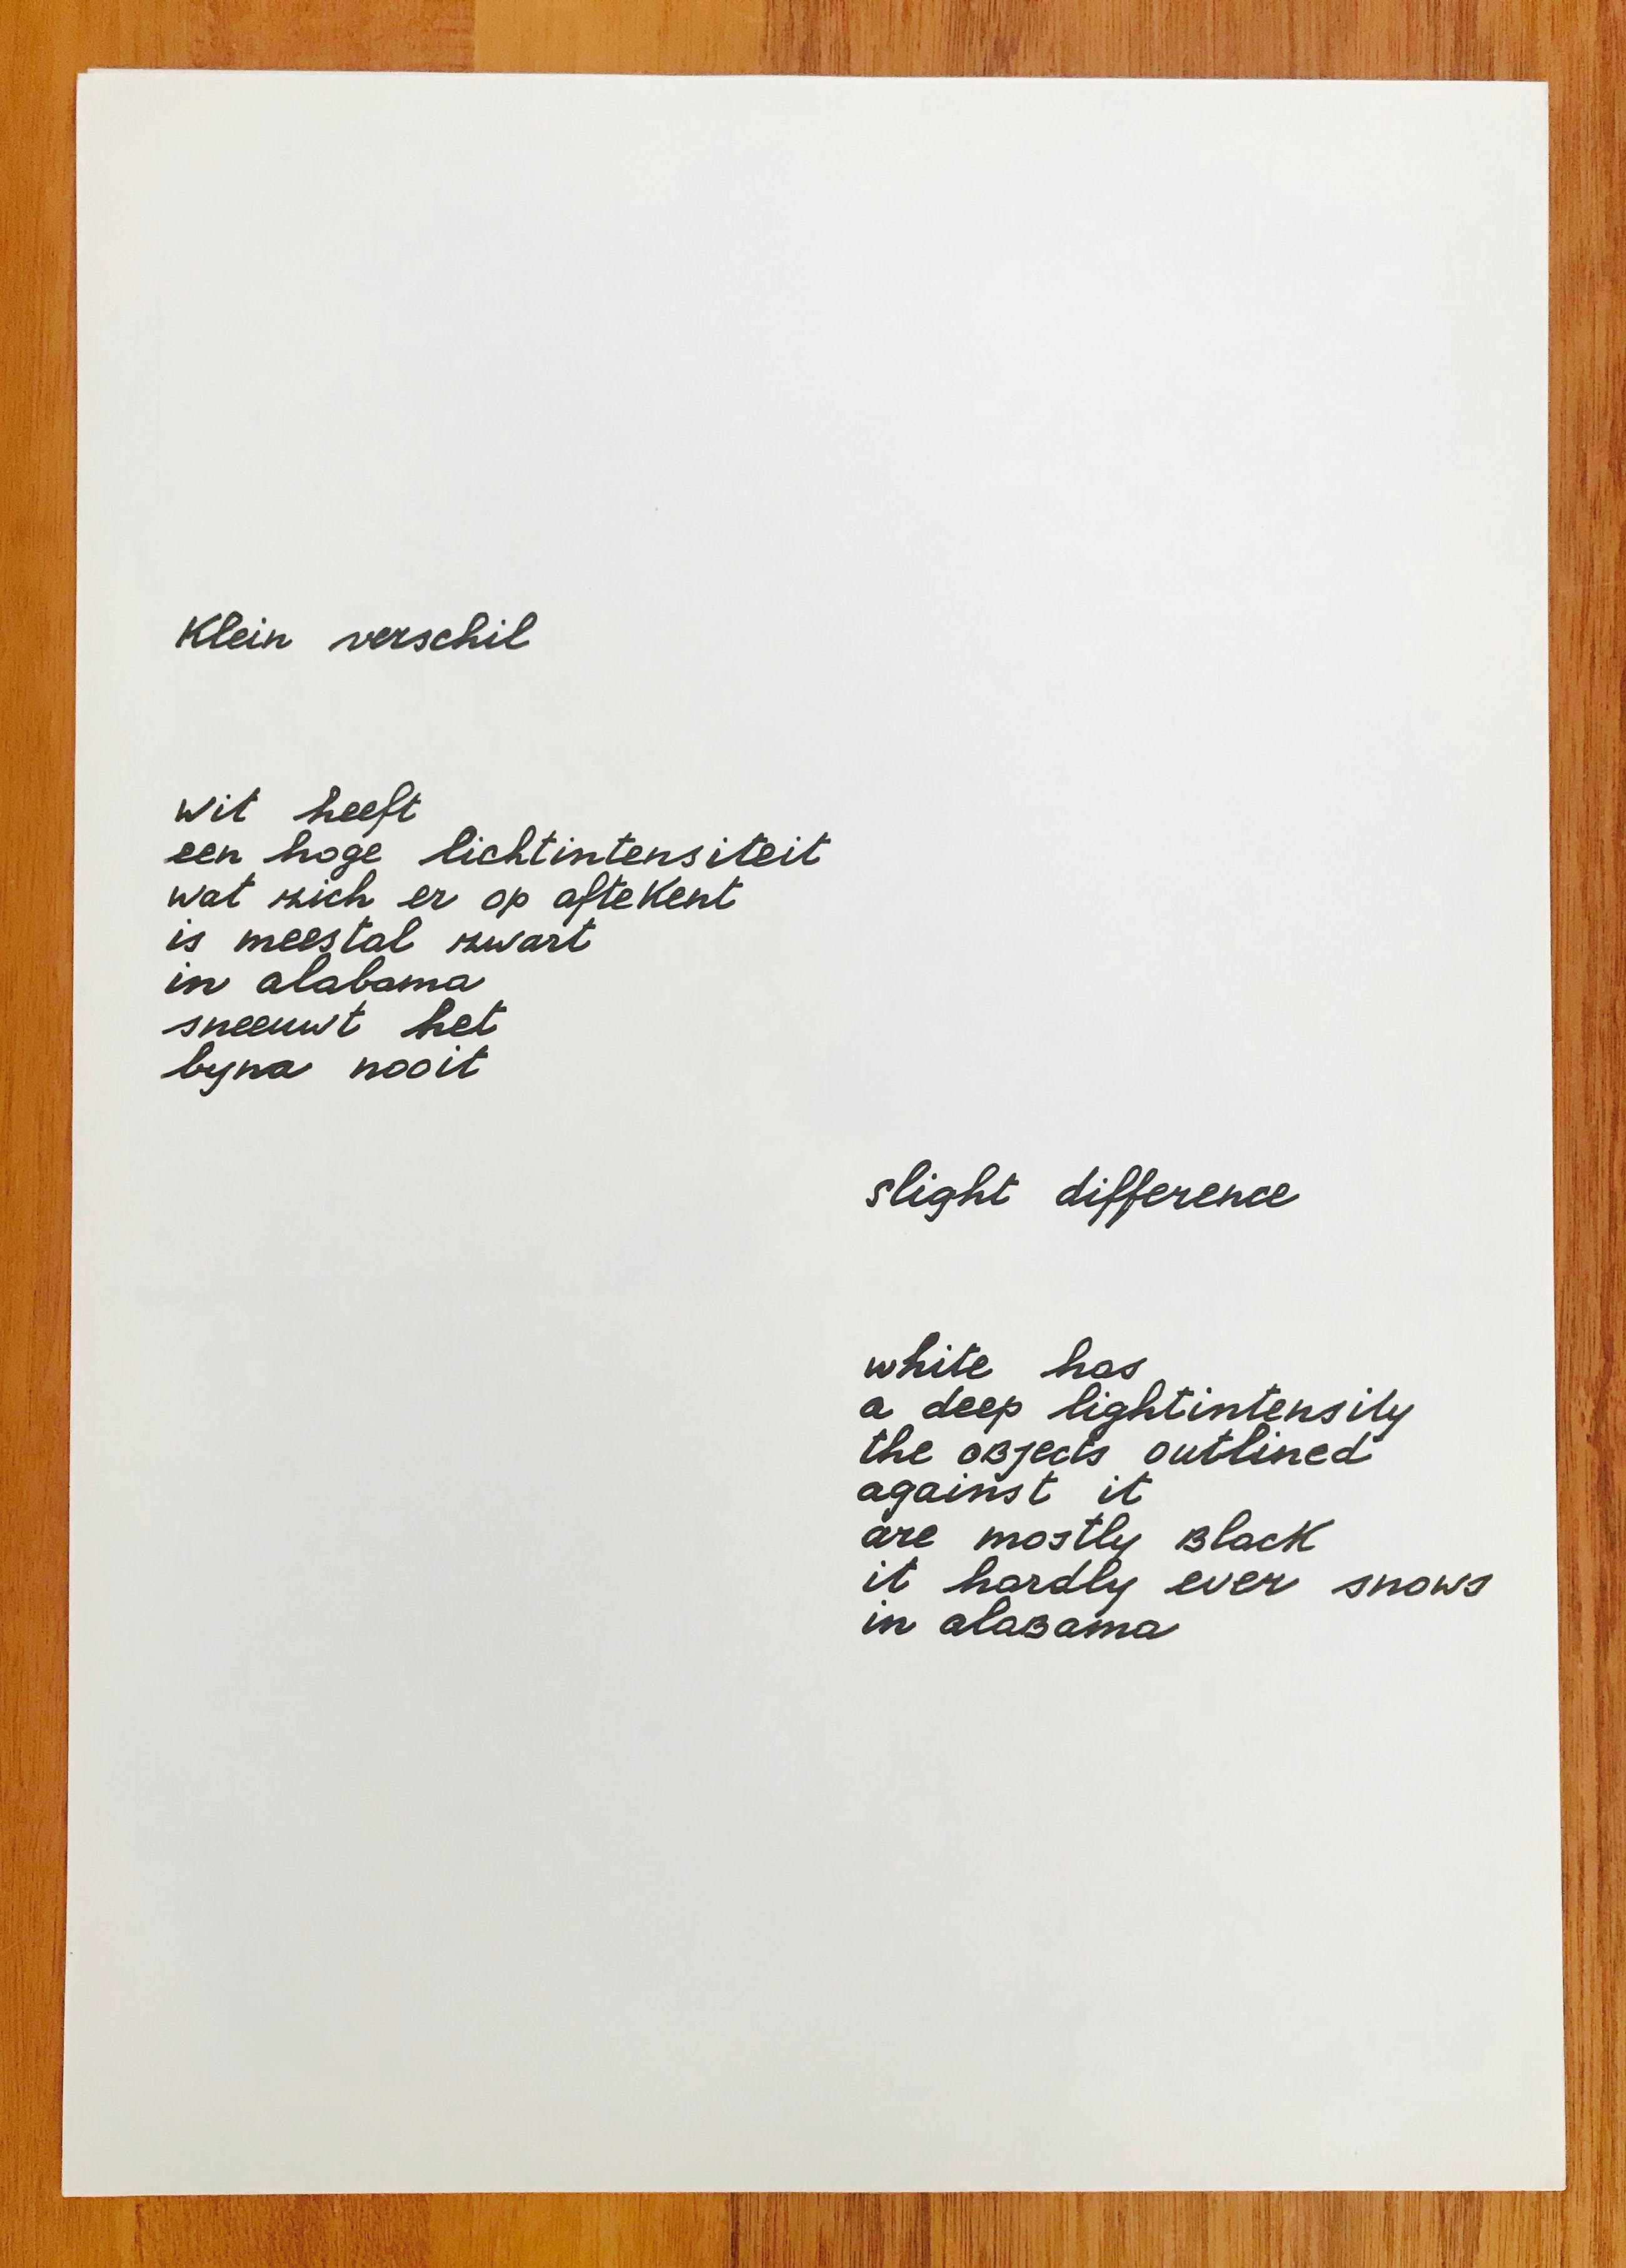 Klein verschil
wit heeft
een hoge lichtintensiteit
wat zich er op aftekent
is meestal zwart
in alabama
sneeuwt het
byna nooit
slight difference
white has
a deep lightintensity
the objects outlined
against it
are mostly Black
it hardly ever snows
in alaBama